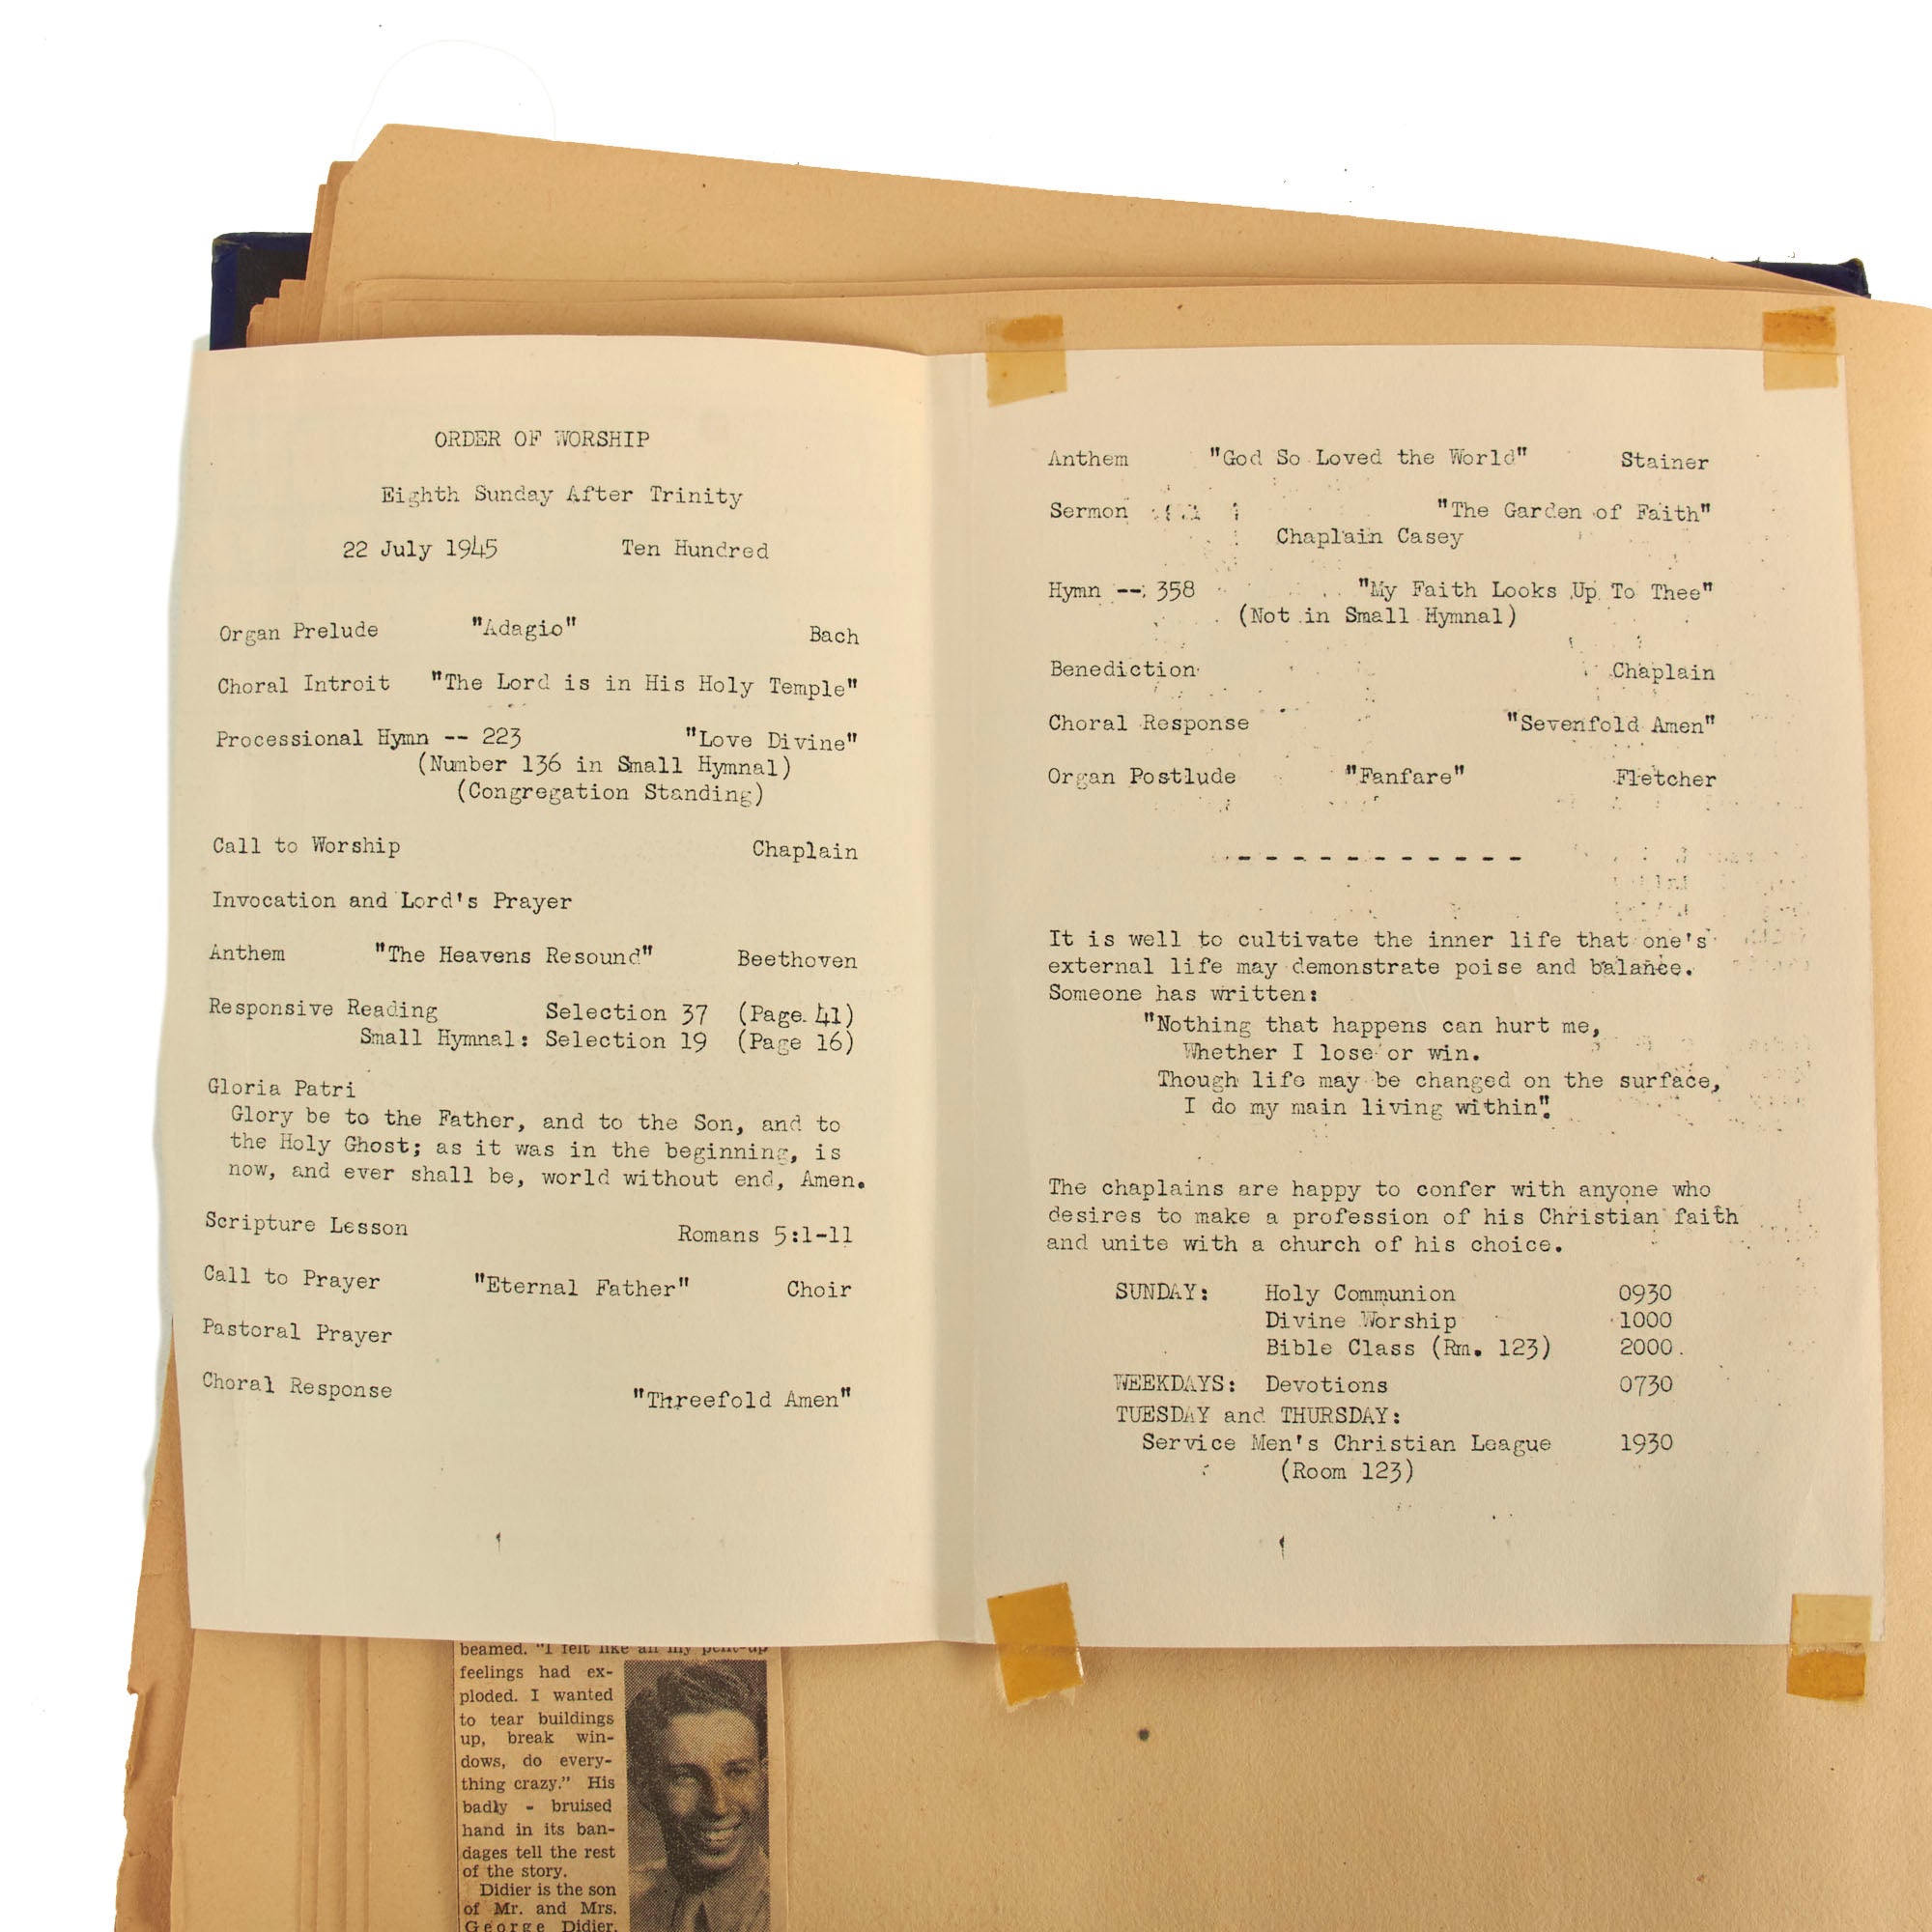 ORDER OF WORSHIP
Eighth Sunday After Trinity
22 July 1945 Ten Hundred
Organ Prelude "Adagio" Bach
Choral Introit "The Lord is in His Holy Temple"
Processional Hymn -- 223 "Love Divine"
(Number 136 in Small Hymnal)
(Congregation Standing)
Call to Worship Chaplain
Invocation and Lord's Prayer
Anthem "The Heavens Resound" Beethoven
Responsive Reading Selection 37 (Page 41)
Small Hymnal: Selection 19 (Page 16)
Gloria Patri
Glory be to the Father, and to the Son, and to
the Holy Ghost; as it was in the beginning, is
now, and ever shall be, world without end, Amen.
Scripture Lesson Romans 5:1-11
Call to Prayer "Eternal Father" Choir
Pastoral Prayer
Choral Response "Threefold Amen"
Anthem "God So Loved the World" Stainer
Sermon "The Garden of Faith"
Chaplain Casey
Hymn -- 358 "My Faith Looks Up To Thee"
(Not in Small Hymnal)
Benediction Chaplain
Choral Response "Sevenfold Amen"
Organ Postlude "Fanfare" Fletcher
- - - - - - - - - - -
It is well to cultivate the inner life that one's
external life may demonstrate poise and balance.
Someone has written:
"Nothing that happens can hurt me,
Whether I lose or win.
Though life may be changed on the surface,
I do my main living within".
The chaplains are happy to confer with anyone who
desires to make a profession of his Christian faith
and unite with a church of his choice.
SUNDAY: Holy Communion 0930
Divine Worship 1000
Bible Class (Rm. 123) 2000
WEEKDAYS: Devotions 0730
TUESDAY and THURSDAY:
Service Men's Christian League 1930
(Room 123)
beamed. "I felt like all my pent-up
feelings had ex-
ploded. I wanted
to tear buildings
up, break win-
dows, do every-
thing crazy." His
badly - bruised
hand in its ban-
dages tell the rest
of the story.
Didier is the son
of Mr. and Mrs.
George Didier,